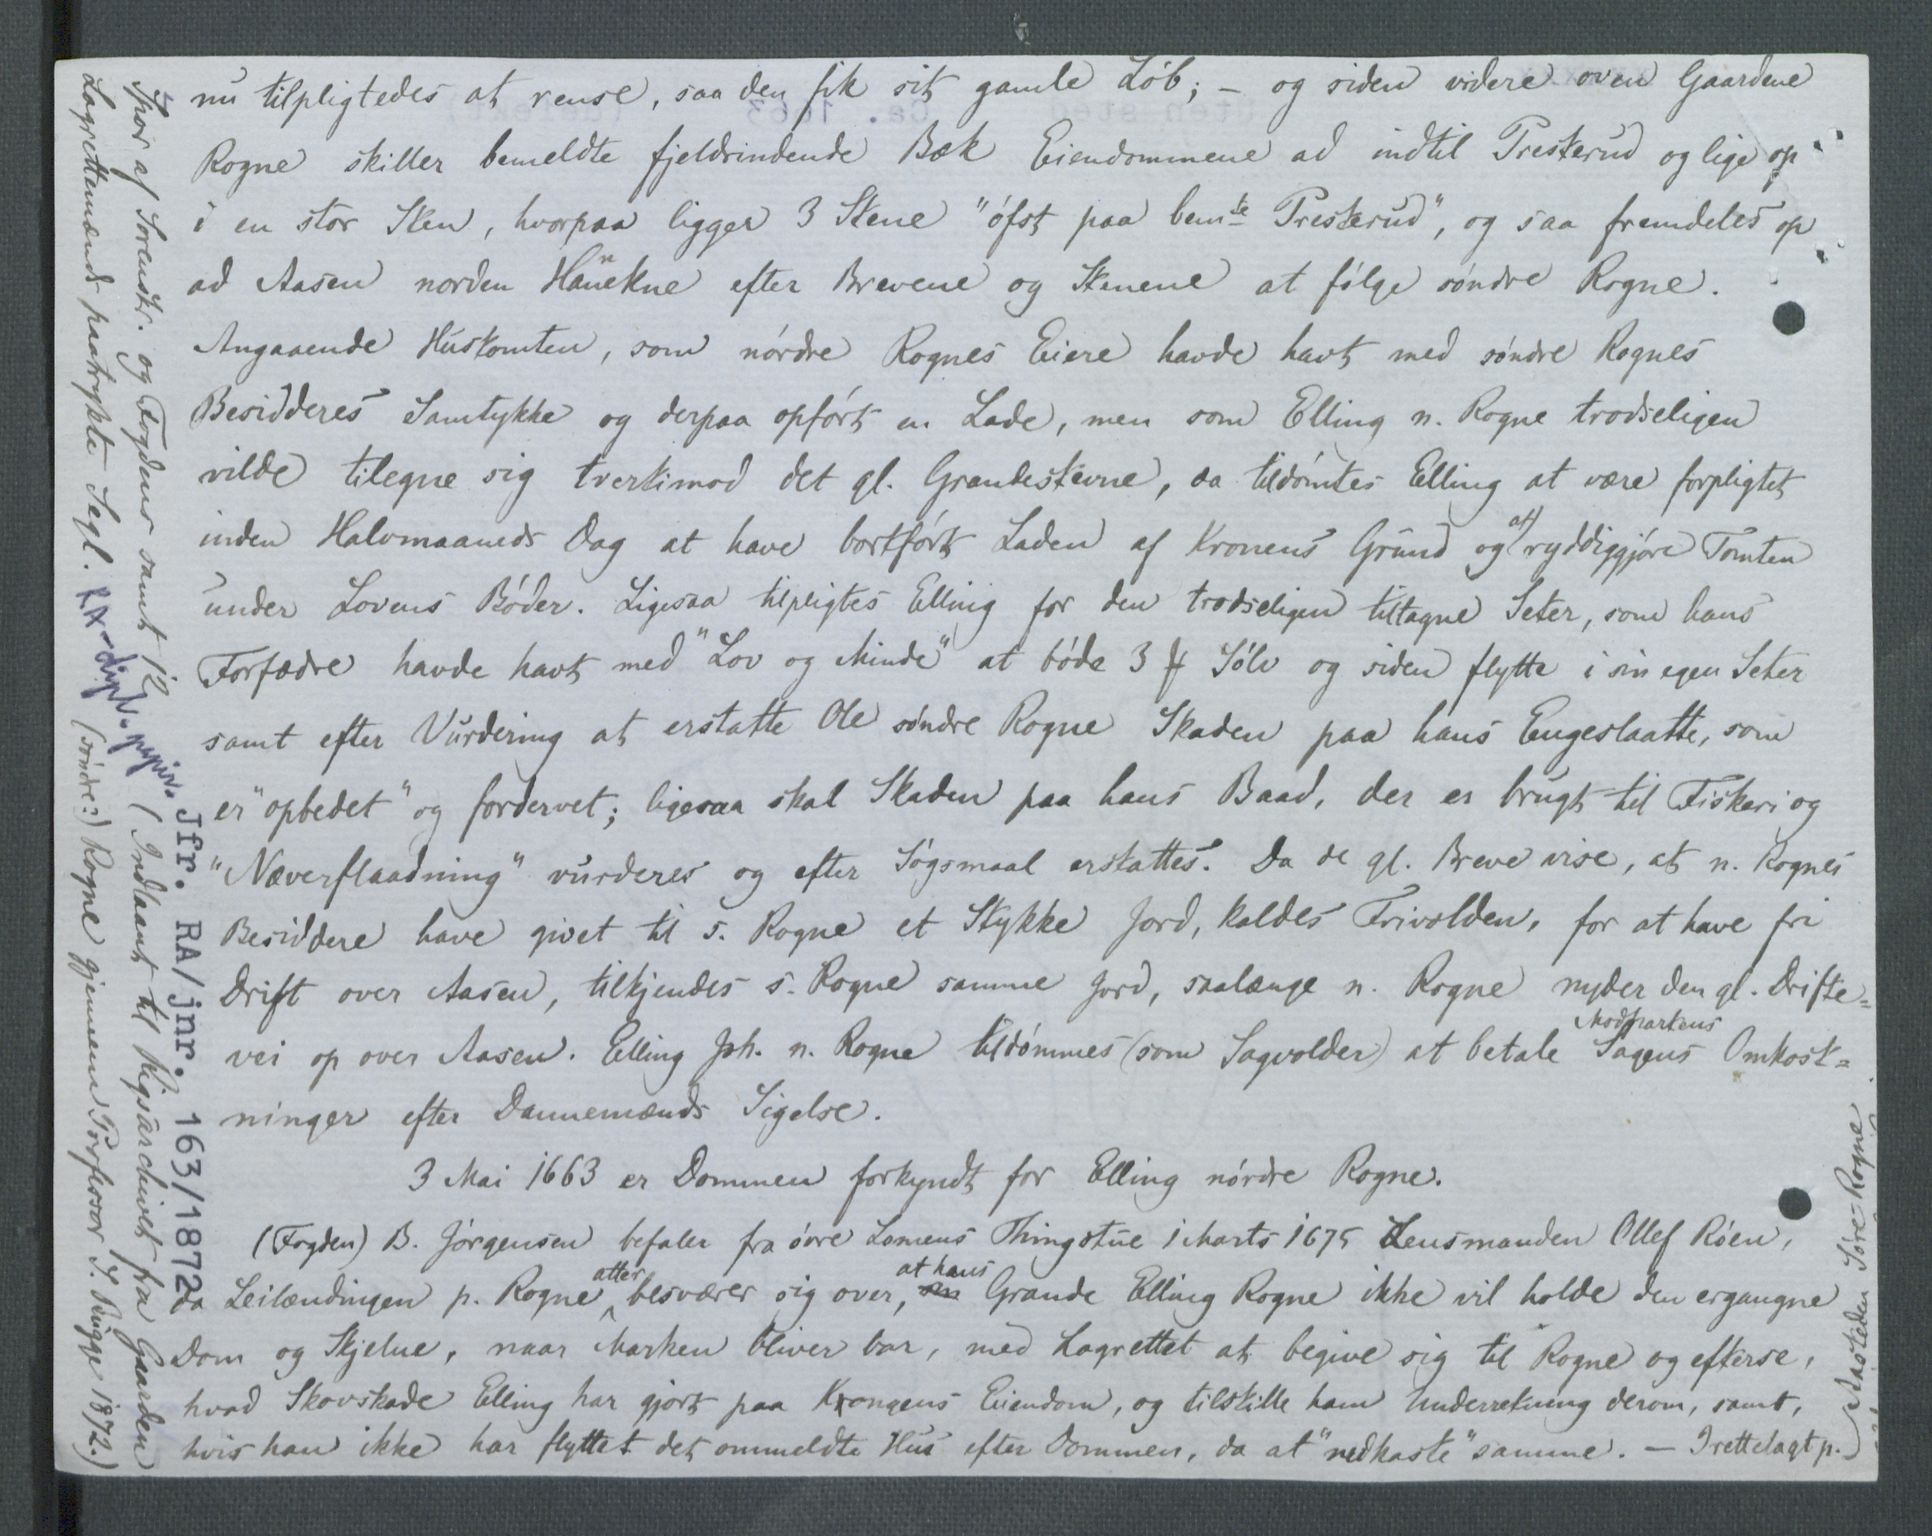 nu tilpligtedes at rense, saa den fik sit gamle Löb; – og siden videre oven Gaardene
Rogne skiller bemeldte fjeldrindende Bæk Eiendommene ad indtil Presterud og lige op
i en stor Sten, hvorpaa ligger 3 Stene "öfst paa bemte Presterud", og saa fremdeles op
ad Aasen norden Hauekne efter Brevene og Stenene at fölge söndre Rogne.
Angaaende Hustomten, som nördre Rognes Eiere havde havt med söndre Rognes
Besidderes Samtykke og derpaa opfört en Lade, men som Elling n. Rogne trodseligen
vilde tilegne sig tvertimod det gl. Grandestevne, da tildömtes Elling at være forpligtet
inden Halvmaaneds Dag at have bortfört Laden af Kronens Grund og at ryddiggjöre Tomten
under Lovens Böder. Ligesaa tilpligtes Elling for den trodseligen tiltagne Seter, som hans
Forfædre havde havt med "Lov og Minde" at böde 3 Sölv og siden flytte i sin egen Seter
samt efter Vurdering at erstatte Ole söndre Rogne Skaden paa hans Engeslaatte, som
er "opbedet" og fordervet; ligesaa skal Skaden paa hans Baad, der er brugt til Fiskeri og
"Næverflaadning" vurderes og efter Sögsmaal erstattes. Da de gl. Breve vise, at n. Rognes
Besiddere have givet til s. Rogne et Stykke Jord, kaldes Trivolden, for at have fri
Drift over Aasen, tilkjendes s. Rogne samme Jord, saalænge n. Rogne nyder den gl. Drifte=
vei op over Aasen. Elling Joh. n. Rogne tildömmes (som Sagvolder) at betale Modpartens Sagens Omkost=
ninger efter Dannemænds Sigelse.
3 Mai 1663 er Dommen forkyndt for Elling nördre Rogne.
(Fogden) B. Jörgensen befaler fra övre Lomens Thingstue 1 Marts 1675 Lensmanden Ollef Röen,
da Leilændingen p. Rogne atter besværer sig over, at hans Grande Elling Rogne ikke vil holde den ergangne
Dom og Skjelne, naar Marken bliver bar, med Lagrettet at begive sig til Rogne og efterse,
hvad Skovskade Elling har gjort paa Krongens Eiendom, og tilskille ham Underretning derom, samt,
hvis han ikke har flyttet det ommeldte Hus efter Dommen, da at "nedkaste" samme. – Irettelagt p.
Aasteden Söre Rogne
Spor af Sorenskr. og Fogdens samt 12
Lagrettemænds paatrykte Segl. RA-dipl. papir.
(Indlaant til Rigsarchivet fra Gaarden
(söndre?) Rogne gjennem Professor S. Bugge 1872.)
Jfr. RA/jnr. 163/1872